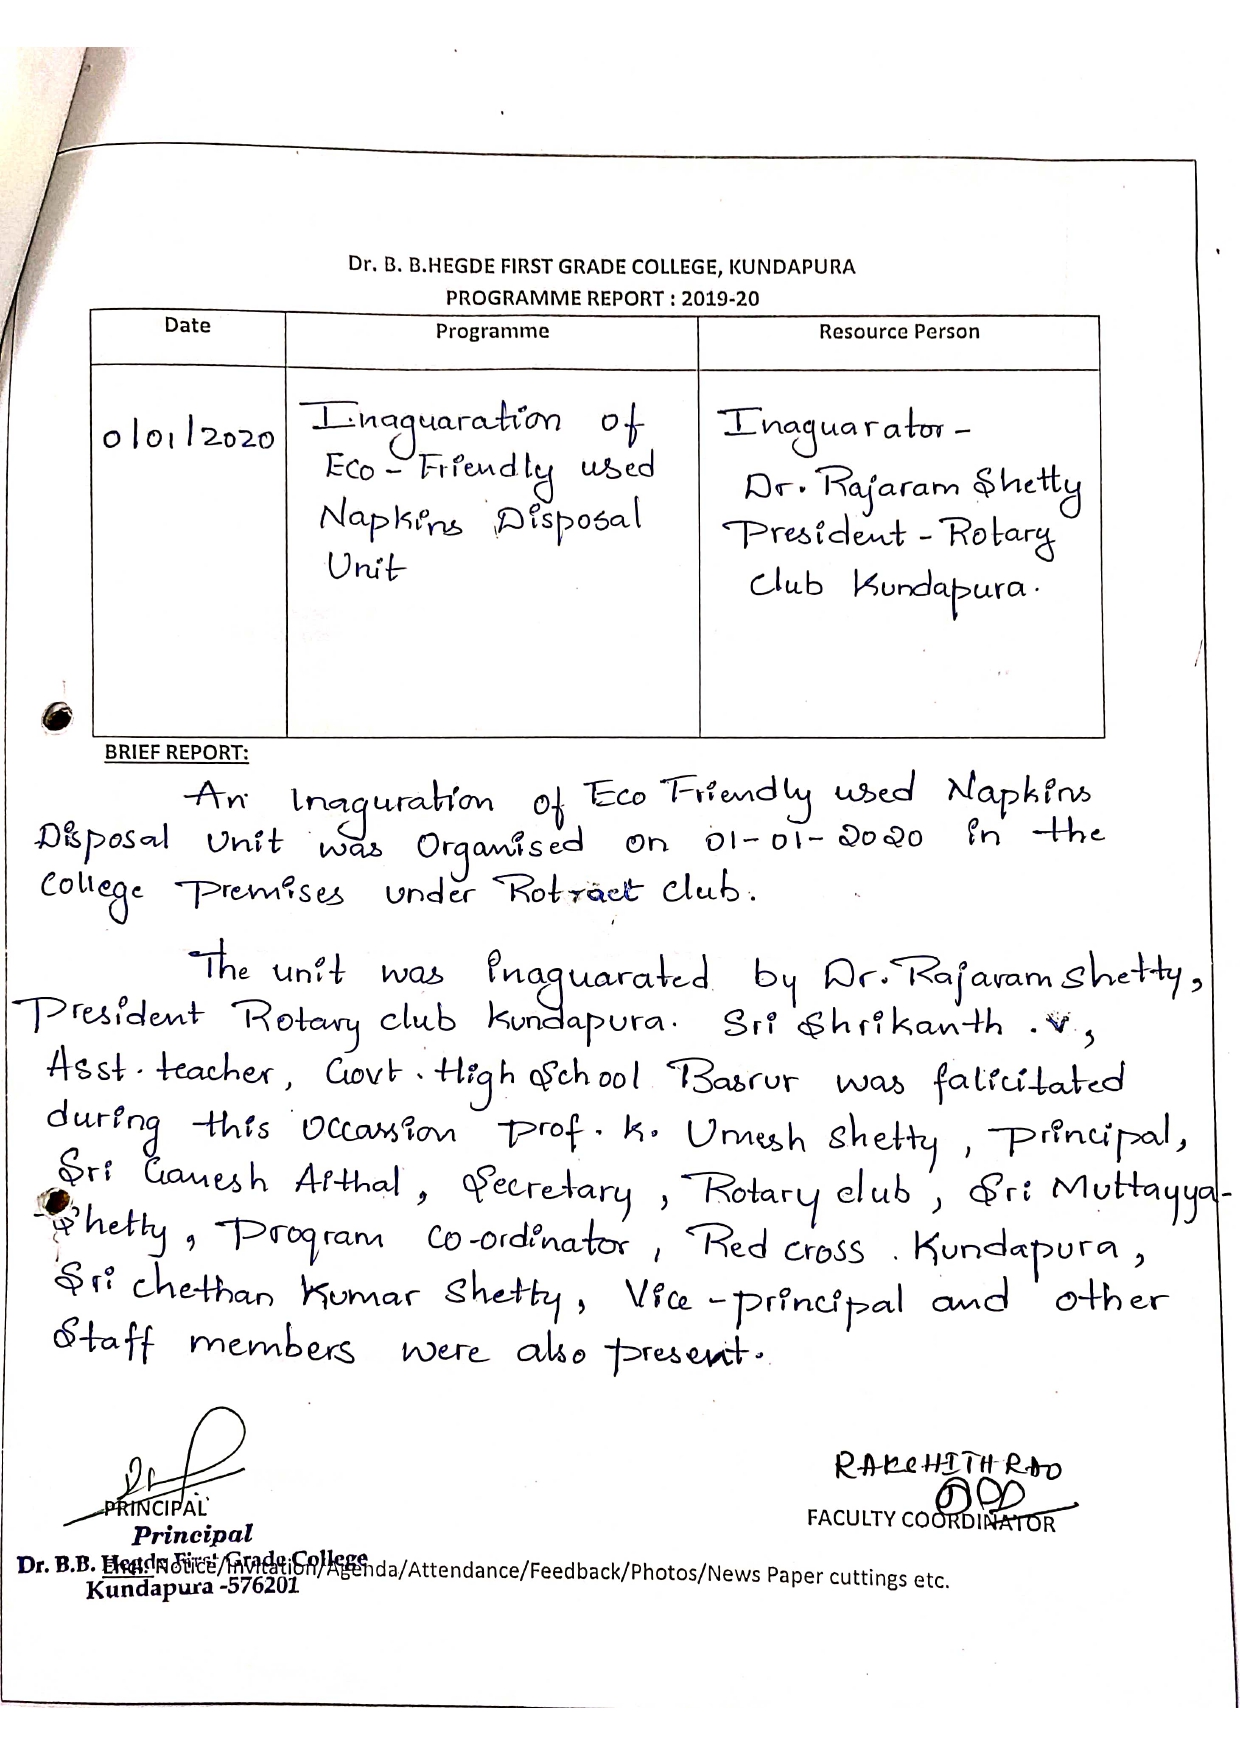 Dr. B. B.HEGDE FIRST GRADE COLLEGE, KUNDAPURA
PROGRAMME REPORT : 2019-20
Date Programme Resource Person
0/01/2020
Inaguaration of
Eco - Friendly used
Napkins Disposal
Unit
Inaguarator -
Dr. Rajaram Shetty
President - Rotary
Club Kundapura.
BRIEF REPORT:
An Inaguration of Eco Friendly used Napkins
Disposal Unit was Organised on 01-01-2020 in the
College Premises under Rotract club.
The unit was inaguarated by Dr. Rajaram Shetty,
President Rotary club Kundapura. Sri Shrikanth .V,
Asst. teacher, Govt. High School Basrur was falicitated
during this occassion prof. K. Umesh Shetty, principal,
Sri Ganesh Aithal, Secretary, Rotary club, Sri Muttayya-
Shetty, Program co-ordinator, Red cross. Kundapura,
Sri chethan Kumar Shetty, Vice-principal and other
Staff members were also present.
RAKSHITH RAO
PRINCIPAL
FACULTY COORDINATOR
Principal
Dr. B.B. Hegde First Grade College
Kundapura -576201
Encl: Notice/Invitation/Agenda/Attendance/Feedback/Photos/News Paper cuttings etc.